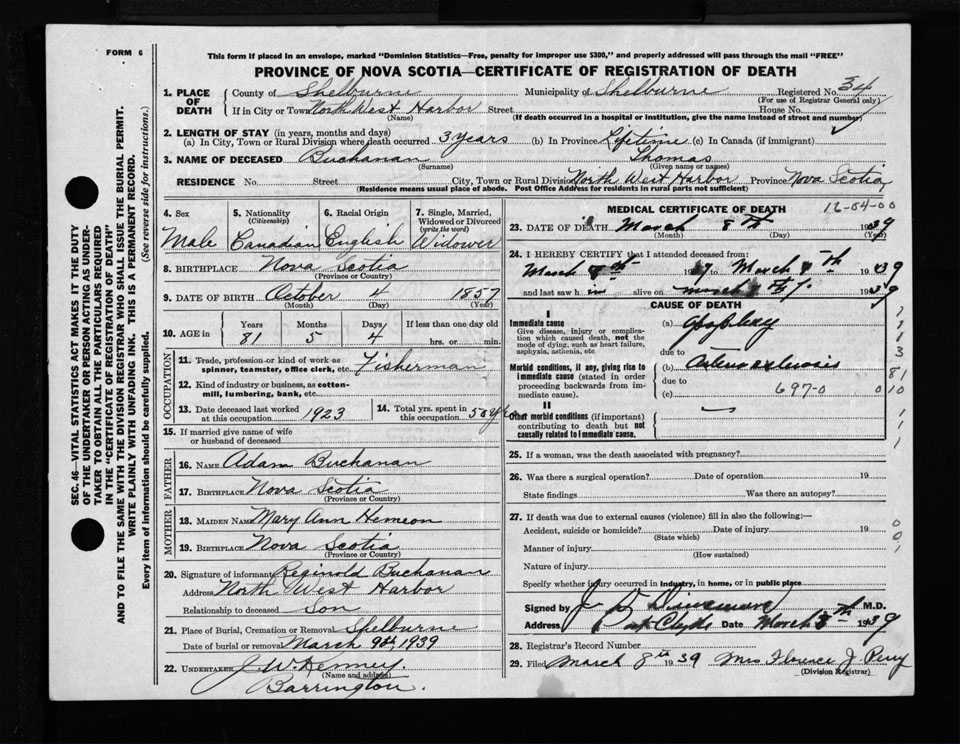 FORM 6
This form if placed in an envelope, marked "Dominion Statistics—Free, penalty for improper use $300," and properly addressed will pass through the mail "FREE"
PROVINCE OF NOVA SCOTIA—CERTIFICATE OF REGISTRATION OF DEATH
1. PLACE OF DEATH County of Shelburne Municipality of Shelburne Registered No. 34
(For use of Registrar General only)
If in City or Town North West Harbor Street House No.
(Name) (If death occurred in a hospital or institution, give the name instead of street and number)
2. LENGTH OF STAY (in years, months and days)
(a) In City, Town or Rural Division where death occurred 3 years (b) In Province Lifetime (c) In Canada (if immigrant)
3. NAME OF DECEASED Buchanan Thomas
(Surname) (Given name or names)
RESIDENCE No. Street City, Town or Rural Division North West Harbor Province Nova Scotia
(Residence means usual place of abode. Post Office Address for residents in rural parts not sufficient)
4. Sex Male
5. Nationality (Citizenship) Canadian
6. Racial Origin English
7. Single, Married, Widowed or Divorced (write the word) Widower
8. BIRTHPLACE Nova Scotia
(Province or Country)
9. DATE OF BIRTH October 4 1857
(Month) (Day) (Year)
10. AGE in Years Months Days If less than one day old
81 5 4 hrs. or min.
OCCUPATION
11. Trade, profession or kind of work as spinner, teamster, office clerk, etc. Fisherman
12. Kind of industry or business, as cotton-mill, lumbering, bank, etc.
13. Date deceased last worked at this occupation 1923
14. Total yrs. spent in this occupation 50 yrs
15. If married give name of wife or husband of deceased
FATHER
16. NAME Adam Buchanan
17. BIRTHPLACE Nova Scotia
(Province or Country)
MOTHER
18. MAIDEN NAME Mary Ann Hemeon
19. BIRTHPLACE Nova Scotia
(Province or Country)
20. Signature of informant Reginold Buchanan
Address North West Harbor
Relationship to deceased Son
21. Place of Burial, Cremation or Removal Shelburne
Date of burial or removal March 9th 1939
22. UNDERTAKER J. W. Kenney
(Name and address)
Barrington.
MEDICAL CERTIFICATE OF DEATH 12-04-00
23. DATE OF DEATH March 8th 1939
(Month) (Day) (Year)
24. I HEREBY CERTIFY that I attended deceased from:
March 19 to March 1939
and last saw h alive on March 1939
CAUSE OF DEATH
I
Immediate cause
Give disease, injury or complication which caused death, not the mode of dying, such as heart failure, asphyxia, asthenia, etc
(a) Apoplexy
due to
Morbid conditions, if any, giving rise to immediate cause (stated in order proceeding backwards from immediate cause)
(b) Arteriosclerosis
due to
(c) 697-0
II
Other morbid conditions (if important) contributing to death but not causally related to immediate cause.
1
1
1
3
81
0 10
1
1
1
25. If a woman, was the death associated with pregnancy?
26. Was there a surgical operation? Date of operation 19
State findings Was there an autopsy?
27. If death was due to external causes (violence) fill in also the following:—
Accident, suicide or homicide? Date of injury 19
(State which)
Manner of injury
(How sustained)
Nature of injury
Specify whether injury occurred in industry, in home, or in public place
0
0
1
Signed by M.D.
Address Port Clyde Date March 8th 1939
28. Registrar's Record Number
29. Filed March 8th 1939 Mrs Florence J Perry
(Division Registrar)
SEC. 46—VITAL STATISTICS ACT MAKES IT THE DUTY
OF THE UNDERTAKER OR PERSON ACTING AS UNDERTAKER TO OBTAIN ALL THE PARTICULARS REQUIRED
IN THE "CERTIFICATE OF REGISTRATION OF DEATH"
AND TO FILE THE SAME WITH THE DIVISION REGISTRAR WHO SHALL ISSUE THE BURIAL PERMIT.
WRITE PLAINLY WITH UNFADING INK. THIS IS A PERMANENT RECORD.
Every item of information should be carefully supplied. (See reverse side for instructions.)